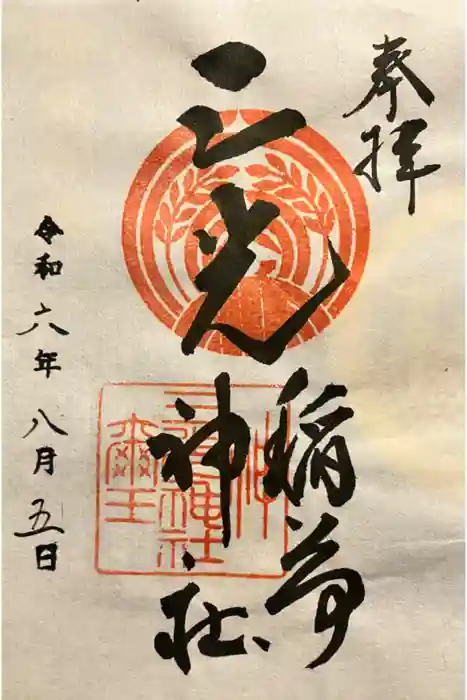 奉拝
三光
稲荷
神社
令和六年八月五日